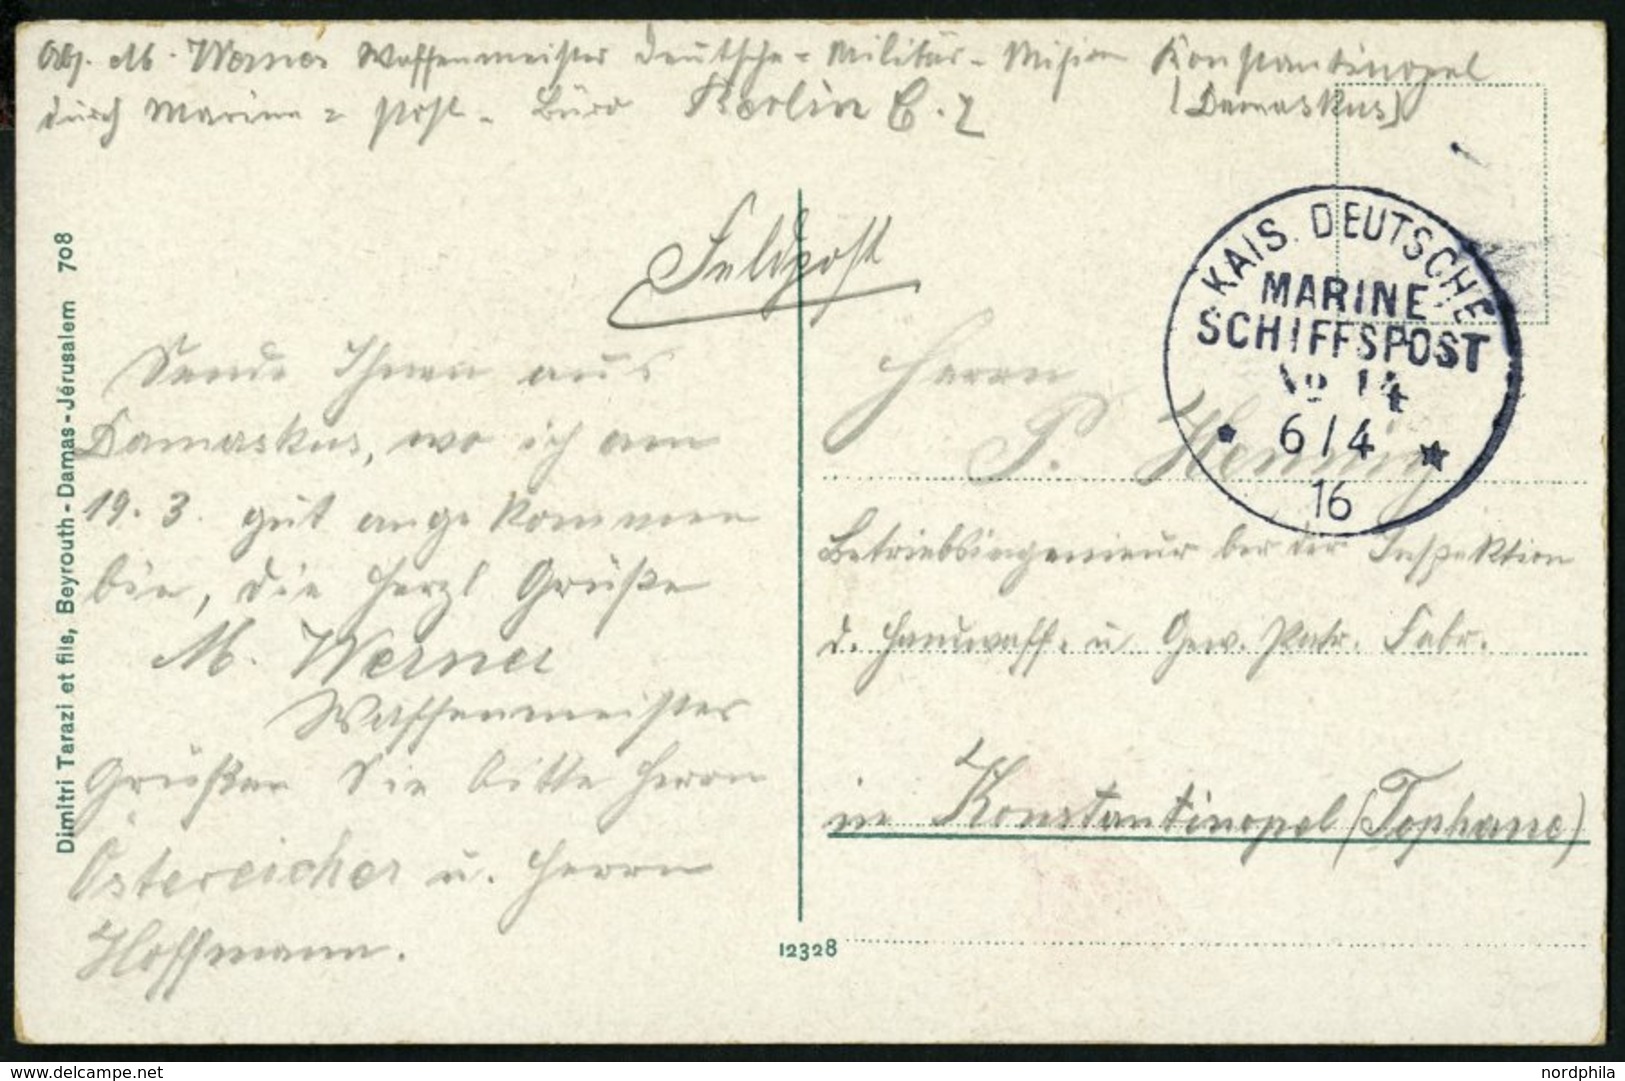 Abs. M. Werner Waffenmeister Deutsche-Militär-Mision Konstantinopel
durch Marine = Post - Büro Berlin C. 2 (Damaskus)
Feldpost
KAIS. DEUTSCHE
MARINE
SCHIFFSPOST
No 14
6/4
16
Dimitri Tarazi et fils, Beyrouth-Damas-Jérusalem 708
Sende Ihnen aus
Damaskus, wo ich am
19. 3. gut angekommen
bin, die herzl Grüße
M. Werner
Waffenmeister
Grüßen Sie bitte Herrn
Östereicher u. Herrn
Hoffmann.
Herrn
P. Hennig
Betriebsingenieur bei der Inspektion
d. Handwaff. u. Gew. Patr. Fabr.
in Konstantinopel (Tophane)
12328
delcampe.net
nordphila